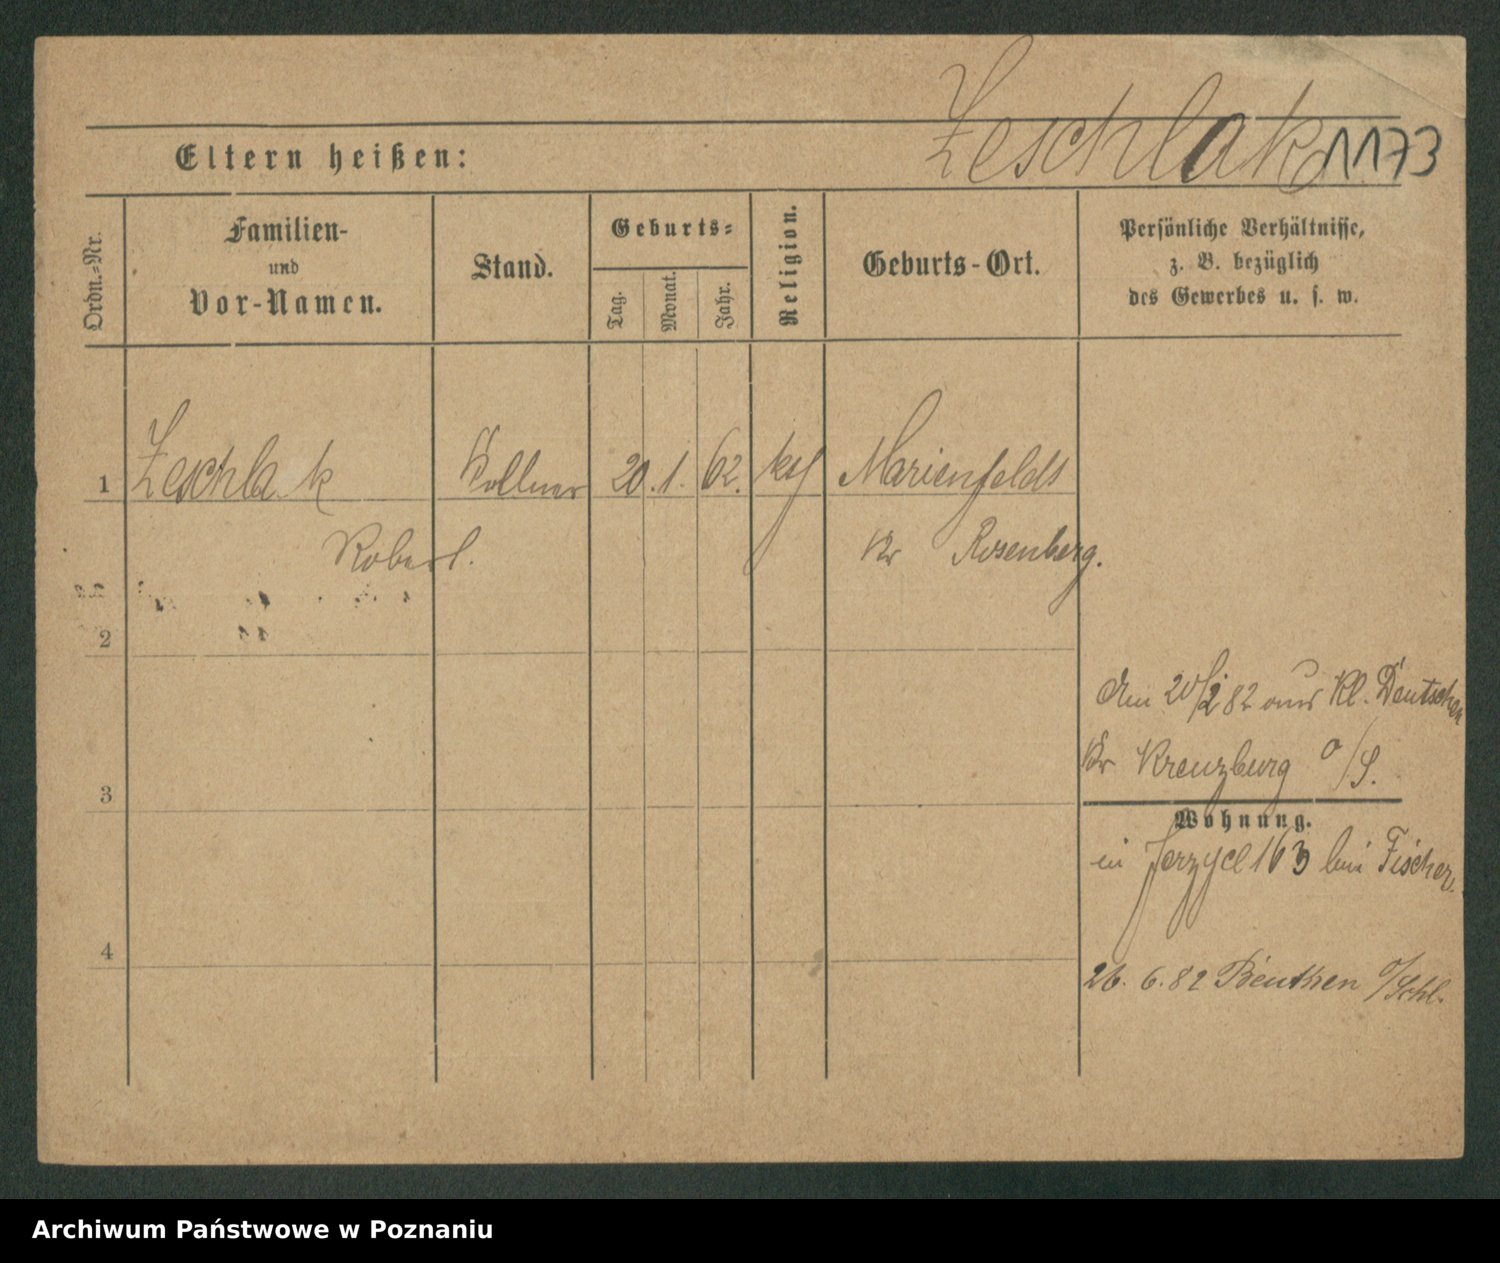 Zeschlak 1173
Eltern heißen:
Ordn.-Nr.
Familien-
und
Vor-Namen.
Stand.
Geburts-
Tag.
Monat.
Jahr.
Religion.
Geburts-Ort.
Persönliche Verhältnisse,
z. B. bezüglich
des Gewerbes u. s. w.
1 Zeschlak Kellner 20. 1. 62. kth Marienfelds
Robert. Kr Rosenberg.
2
Am 20/2 82 aus Kl. Deutschen
Kr Kreuzburg O/S.
3
Wohnung.
in Jerzyce 163 bei Fischer.
4
26. 6. 82 Beuthen O/Schl.
Archiwum Państwowe w Poznaniu